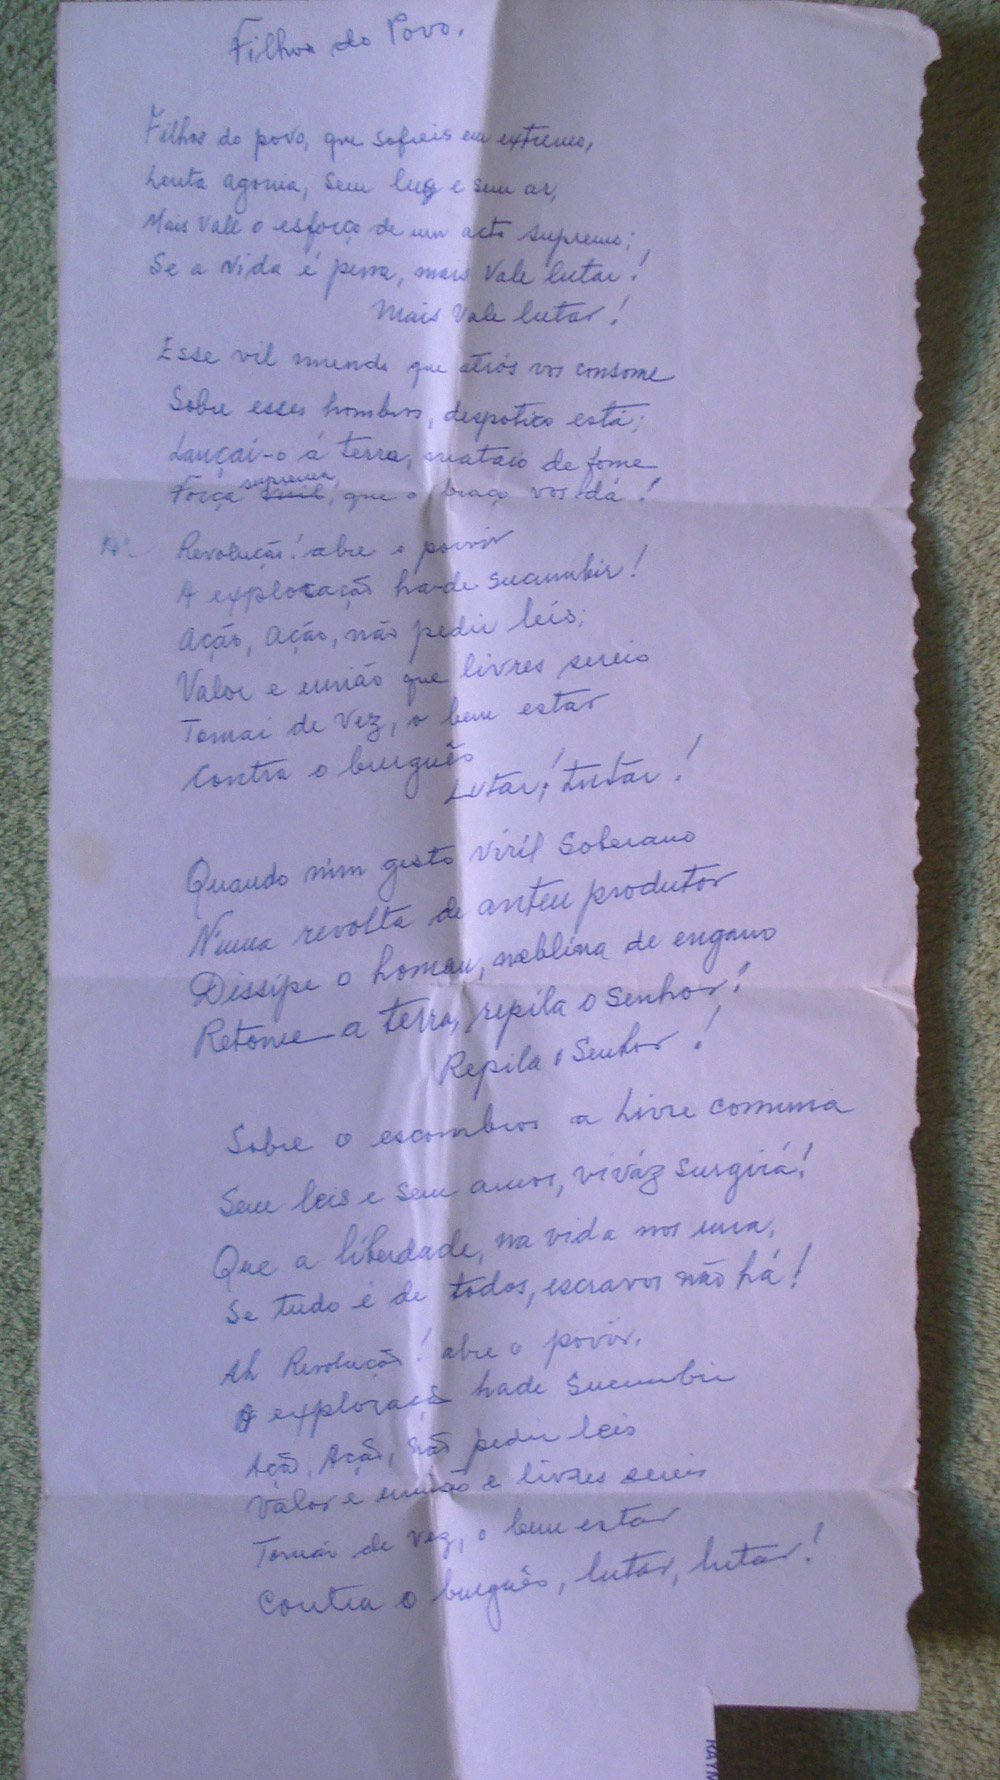 Filhos do Povo.
Filhos do povo, que sofreis em extremo,
Lenta agonia, sem luz e sem ar,
Mais vale o esforço de um acto supremo;
Se a vida é pena, mais vale lutar!
Mais vale lutar!
Esse vil mundo que atrós vos consome
Sobre esses hombros, despotico está;
Lançai-o á terra, mataio de fome
suprema,
Força que o braço vos dá!
Ah Revolução! abre o povir
A exploração ha-de sucumbir!
Ação, Ação, não pedir leis;
Valor e união que livres sereis
Tomai de vez, o bem estar
Contra o burguês
Lutar! Lutar!
Quando nim gesto viril soberano
Numa revolta de anteu produtor
Dissipe o homem, neblina de engano
Retome a terra, repila o Senhor!
Repila o Senhor!
Sobre o escombros a Livre comuna
Sem leis e sem amos, viváz surgirá!
Que a liberdade, na vida nos una,
Se tudo é de todos, escravos não há!
Ah Revolução! abre o povir.
A exploraçã hade sucumbir
Ação, Ação, não pedir leis
Valor e união e livres sereis
Tomai de vez, o bem estar
Contra o burguês, lutar, lutar!